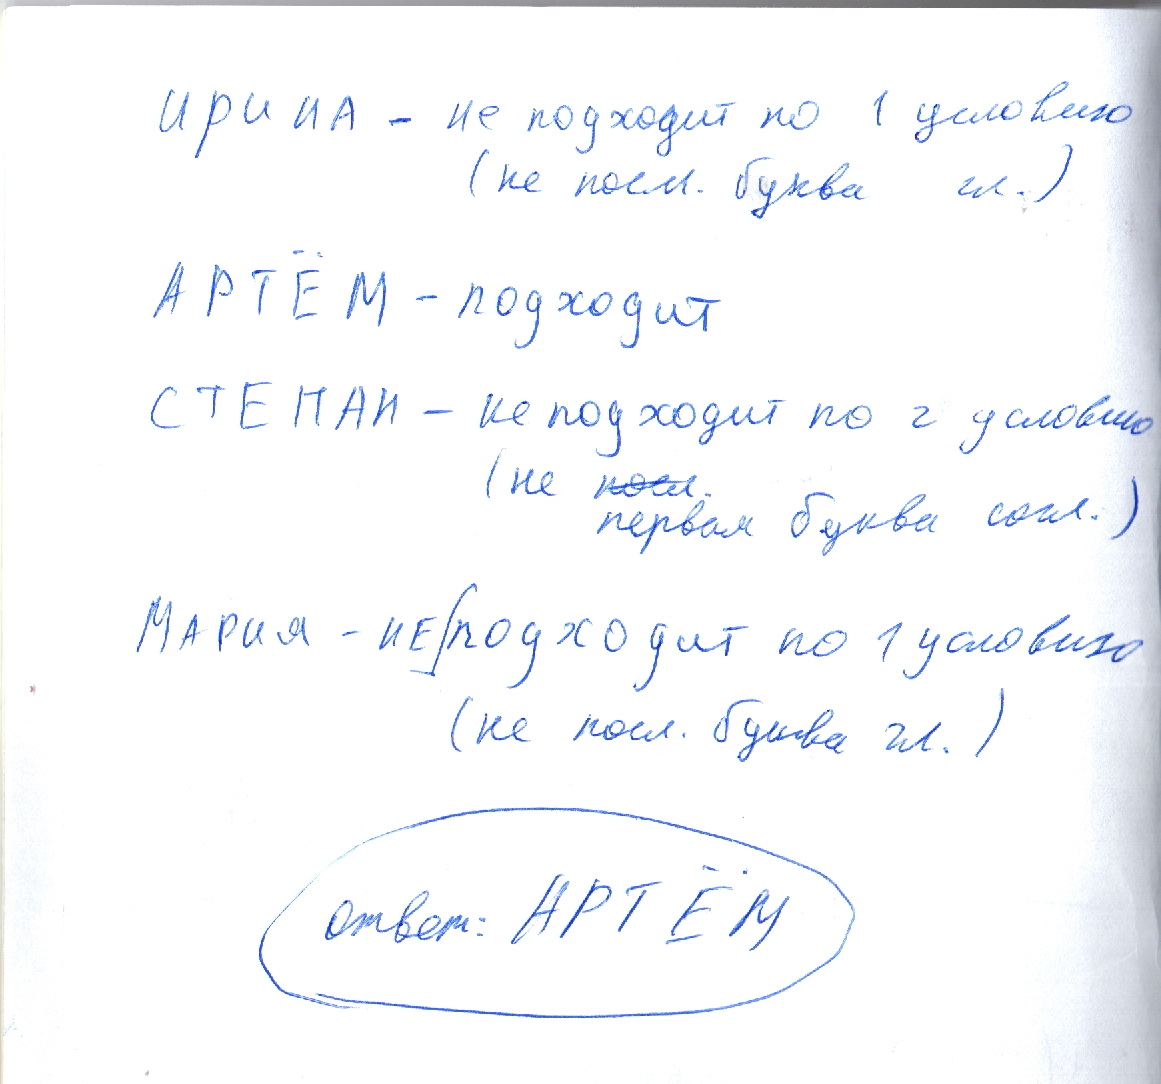 ИРИНА - не подходит по 1 условию
(не посл. буква гл.)
АРТЁМ - подходит
СТЕПАН - не подходит по 2 условию
(не посл.
первая буква согл.)
МАРИЯ - НЕ подходит по 1 условию
(не посл. буква гл.)
ответ: АРТЁМ